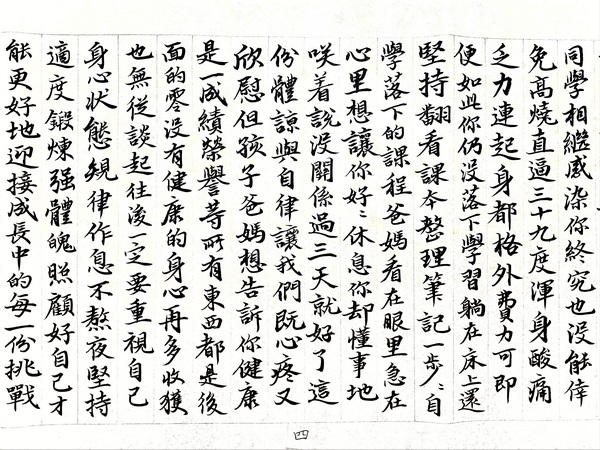 同學相繼感染你終究也没能倖
免高燒直逼三十九度渾身酸痛
乏力連起身都格外費力可即
便如此你仍没落下學習躺在床上還
堅持翻看課本整理筆記一步〻自
學落下的課程爸媽看在眼里急在
心里想讓你好〻休息你却懂事地
咲着説没關係過三天就好了這
份體諒與自律讓我們既心疼又
欣慰但孩子爸媽想告訴你健康
是一成績榮譽等所有東西都是後
面的零没有健康的身心再多收獲
也無從談起往後一定要重視自己
身心狀態規律作息不熬夜堅持
適度鍛煉强體魄照顧好自己才
能更好地迎接成長中的每一份挑戰
四